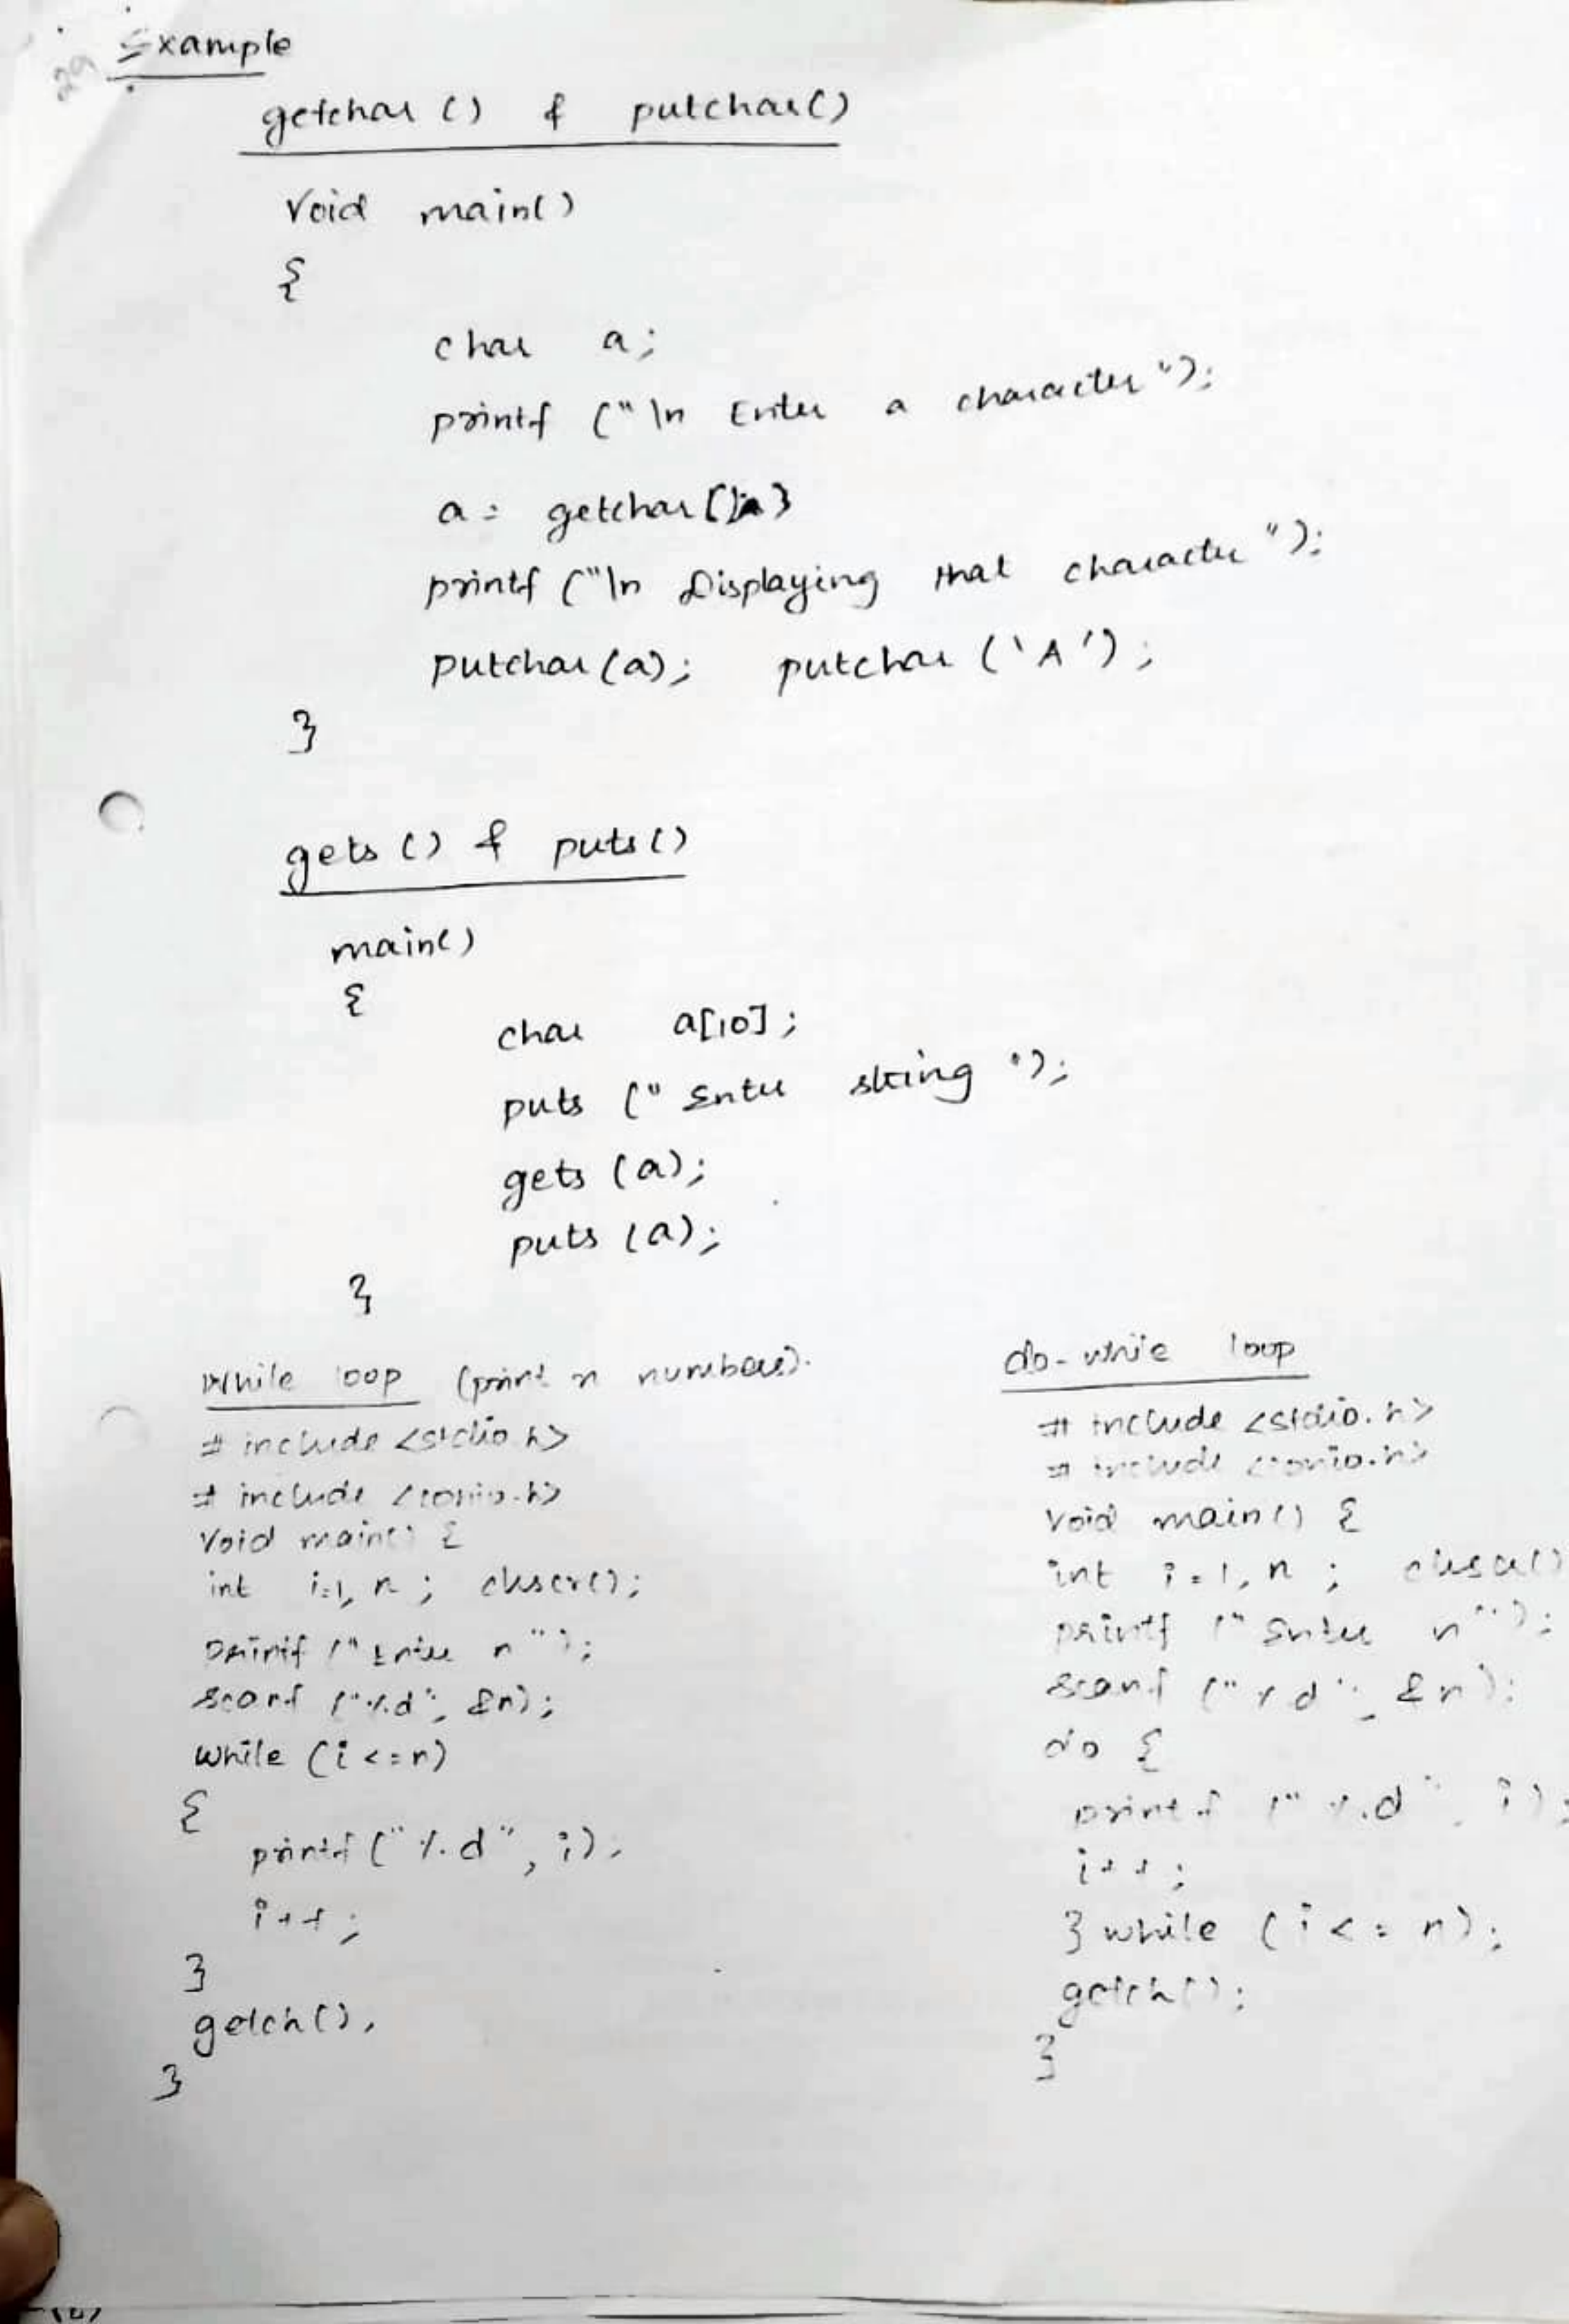 29
Example
getchar () & putchar()
Void main()
{
char a;
printf ("\n Enter a character");
a = getchar();
printf ("\n Displaying that character");
putchar(a); putchar ('A');
}
gets () & puts ()
main()
{
char a[10];
puts (" Enter string ");
gets (a);
puts (a);
}
While loop (print n numbers).
# include <stdio.h>
# include <conio.h>
Void main() {
int i=1, n ; clrscr();
printf (" Enter n ");
scanf ("%d", &n);
while (i <= n)
{
printf ("%d", i);
i++;
}
getch();
}
do-while loop
# include <stdio.h>
# include <conio.h>
Void main() {
int i = 1, n ; clrscr()
printf (" Enter n ");
scanf ("%d", &n);
do {
printf ("%d", i);
i++;
} while (i <= n);
getch();
}